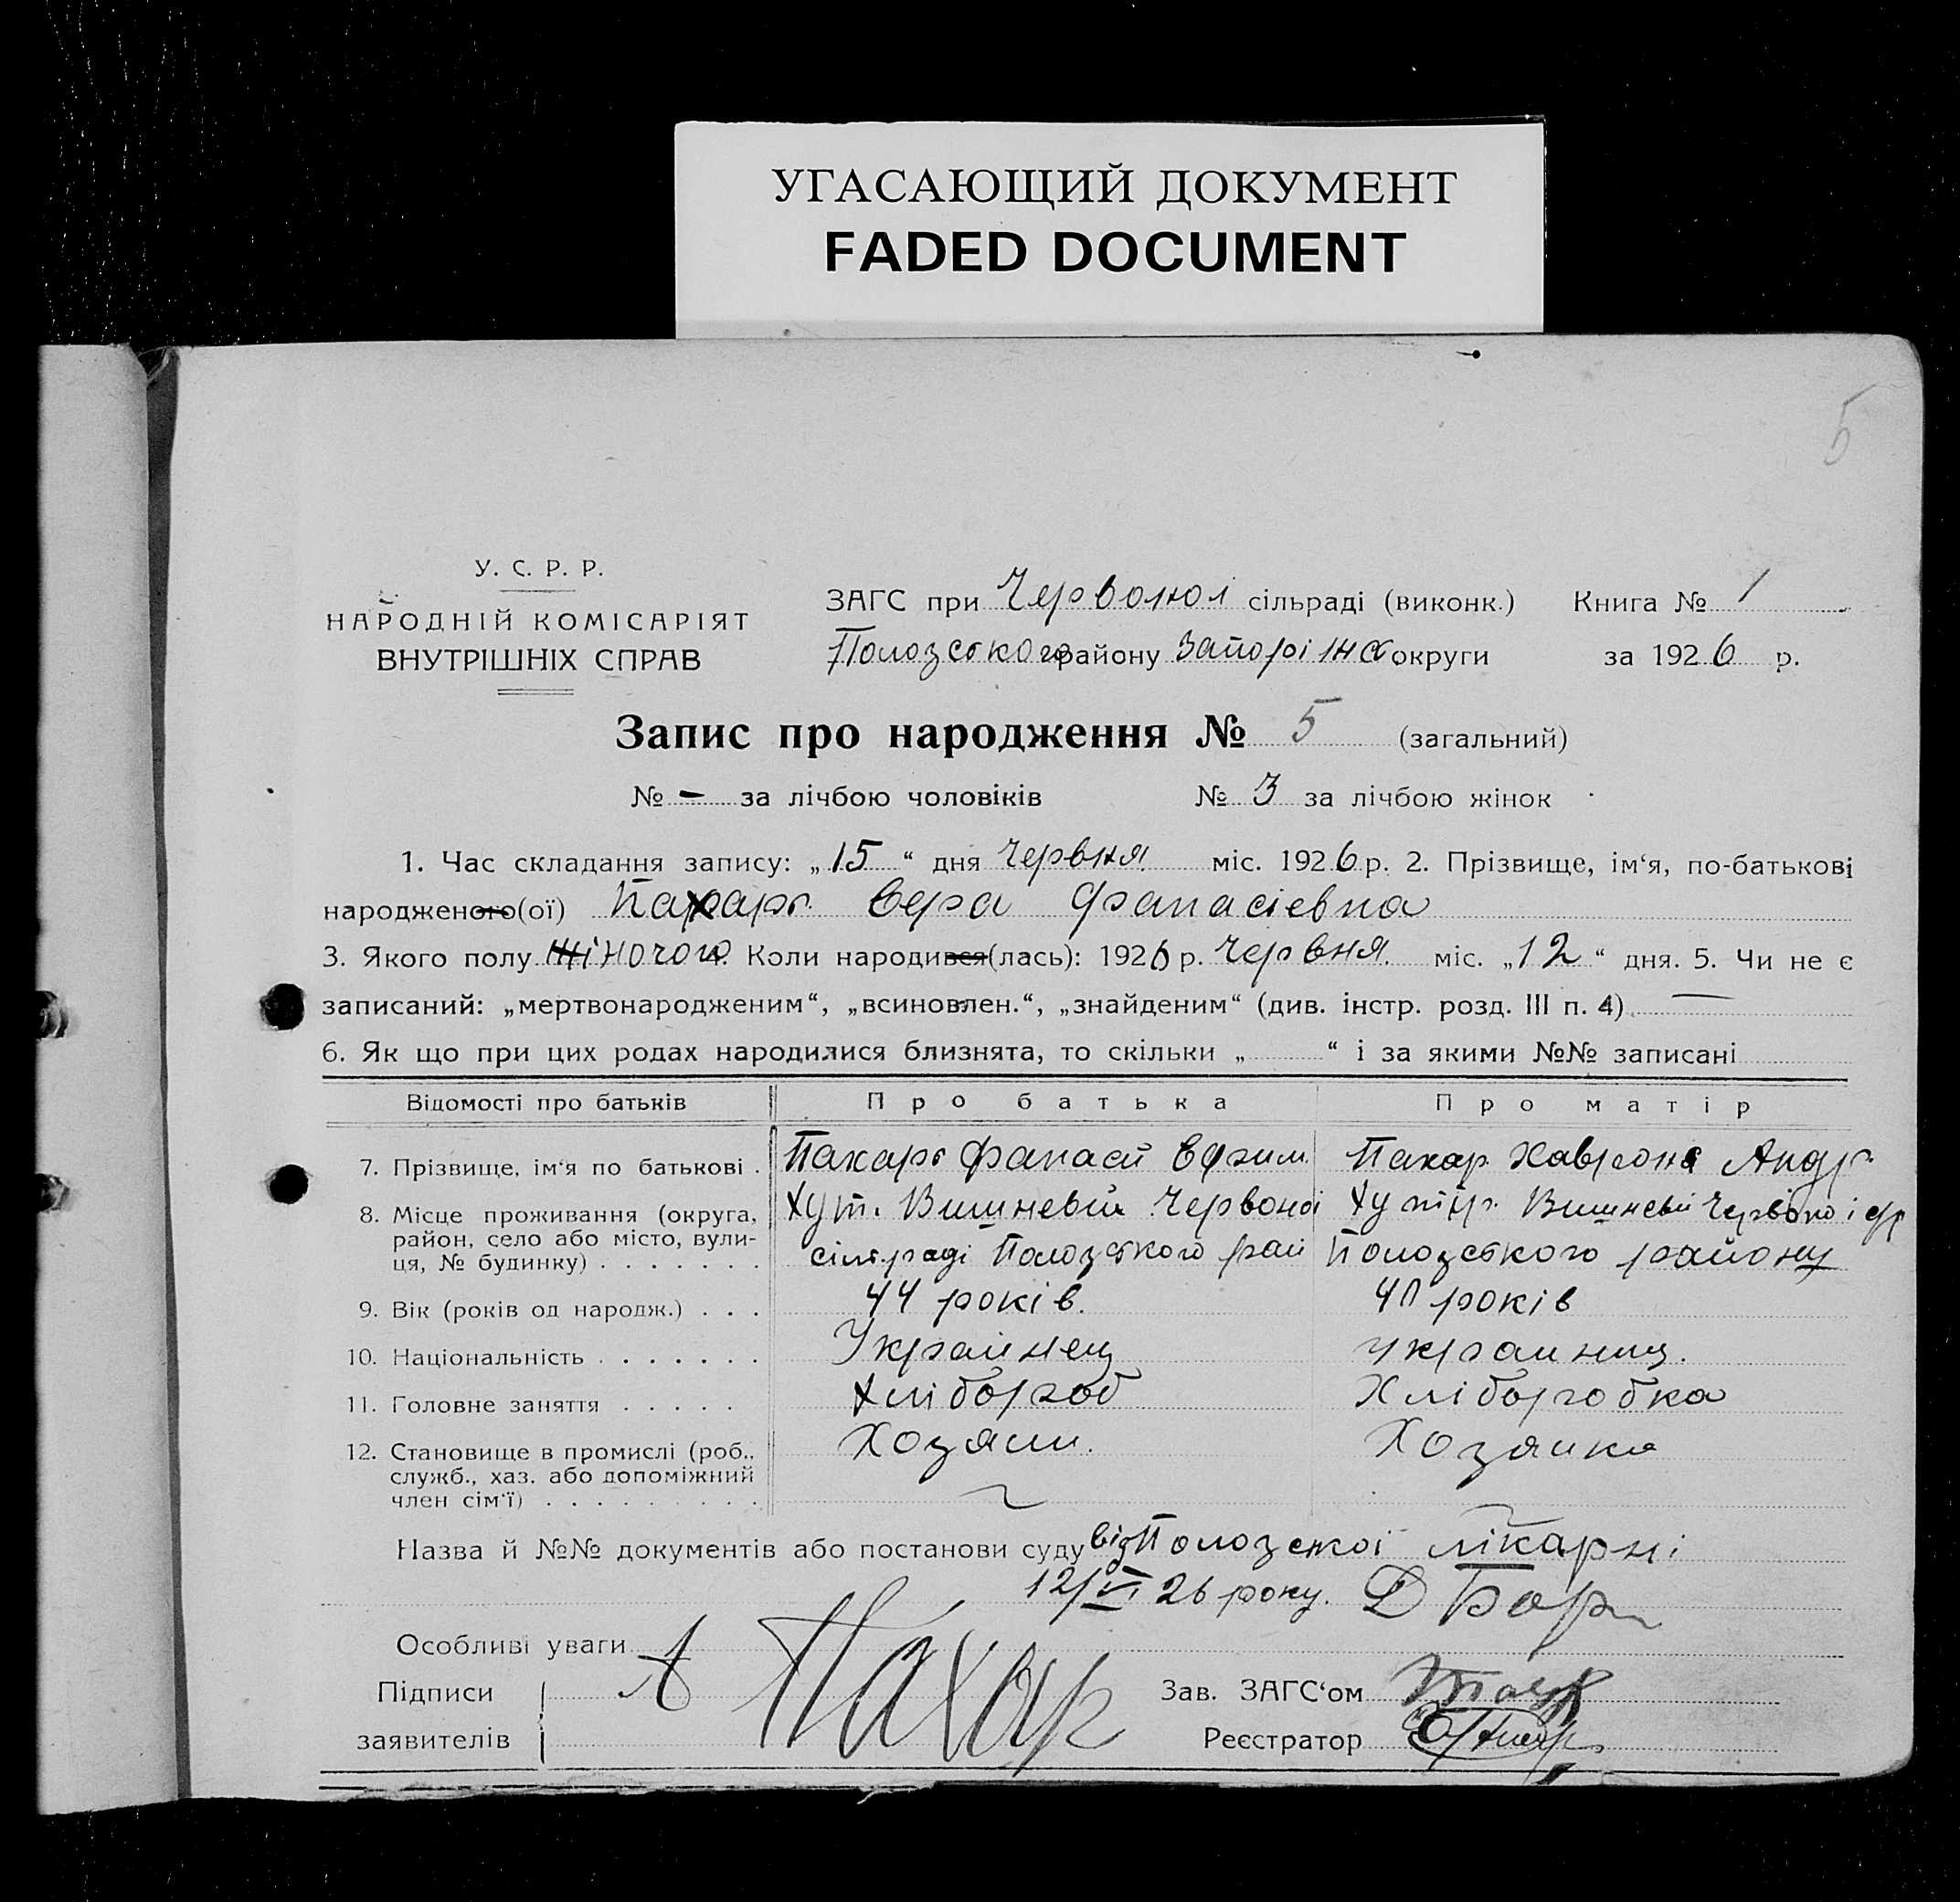 УГАСАЮЩИЙ ДОКУМЕНТ
FADED DOCUMENT
5
У. С. Р. Р.
НАРОДНІЙ КОМІСАРІЯТ
ВНУТРІШНІХ СПРАВ
ЗАГС при Червоної сільраді (виконк.) Книга № 1
Полозського району Запоріжс округи за 1926 р.
Запис про народження № 5 (загальний)
№ - за лічбою чоловіків № 3 за лічбою жінок
1. Час складання запису: „15“ дня Червня міс. 1926 р. 2. Прізвище, ім‘я, по-батькові
народженого(ої) Пахарь Вера Фанасіевна
3. Якого полу Жіночого 4. Коли народився(лась): 1926 р. Червня міс. „12“ дня. 5. Чи не є
записаний: „мертвонародженим“, „всиновлен.“, „знайденим“ (див. інстр. розд. III п. 4) —
6. Як що при цих родах народилися близнята, то скільки „ “ і за якими №№ записані
Відомості про батьків Про батька Про матір
7. Прізвище, ім‘я по батькові . Пахарь Фанасій Ефрим Пахар Хавроня Андр
8. Місце проживання (округа, Хут. Вишневий Червоної Хутір Вишневий
район, село або місто, вули- сільраді Полозского рай Полозського району
ця, № будинку) . . . . . . .
9. Вік (років од народж.) . . . 44 років. 40 років
10. Національність . . . . . . . Украинец украиниц.
11. Головне заняття . . . . . Хлібороб Хліборобка
12. Становище в промислі (роб., Хозяин. Хозяйка
служб., хаз. або допоміжний
член сім‘ї) . . . . . . . . .
Назва й №№ документів або постанови суду від Полозської лікарні
12/VI 26 року.
Особливі уваги
Підписи А Пахар Зав. ЗАГС‘ом
заявителів Реєстратор